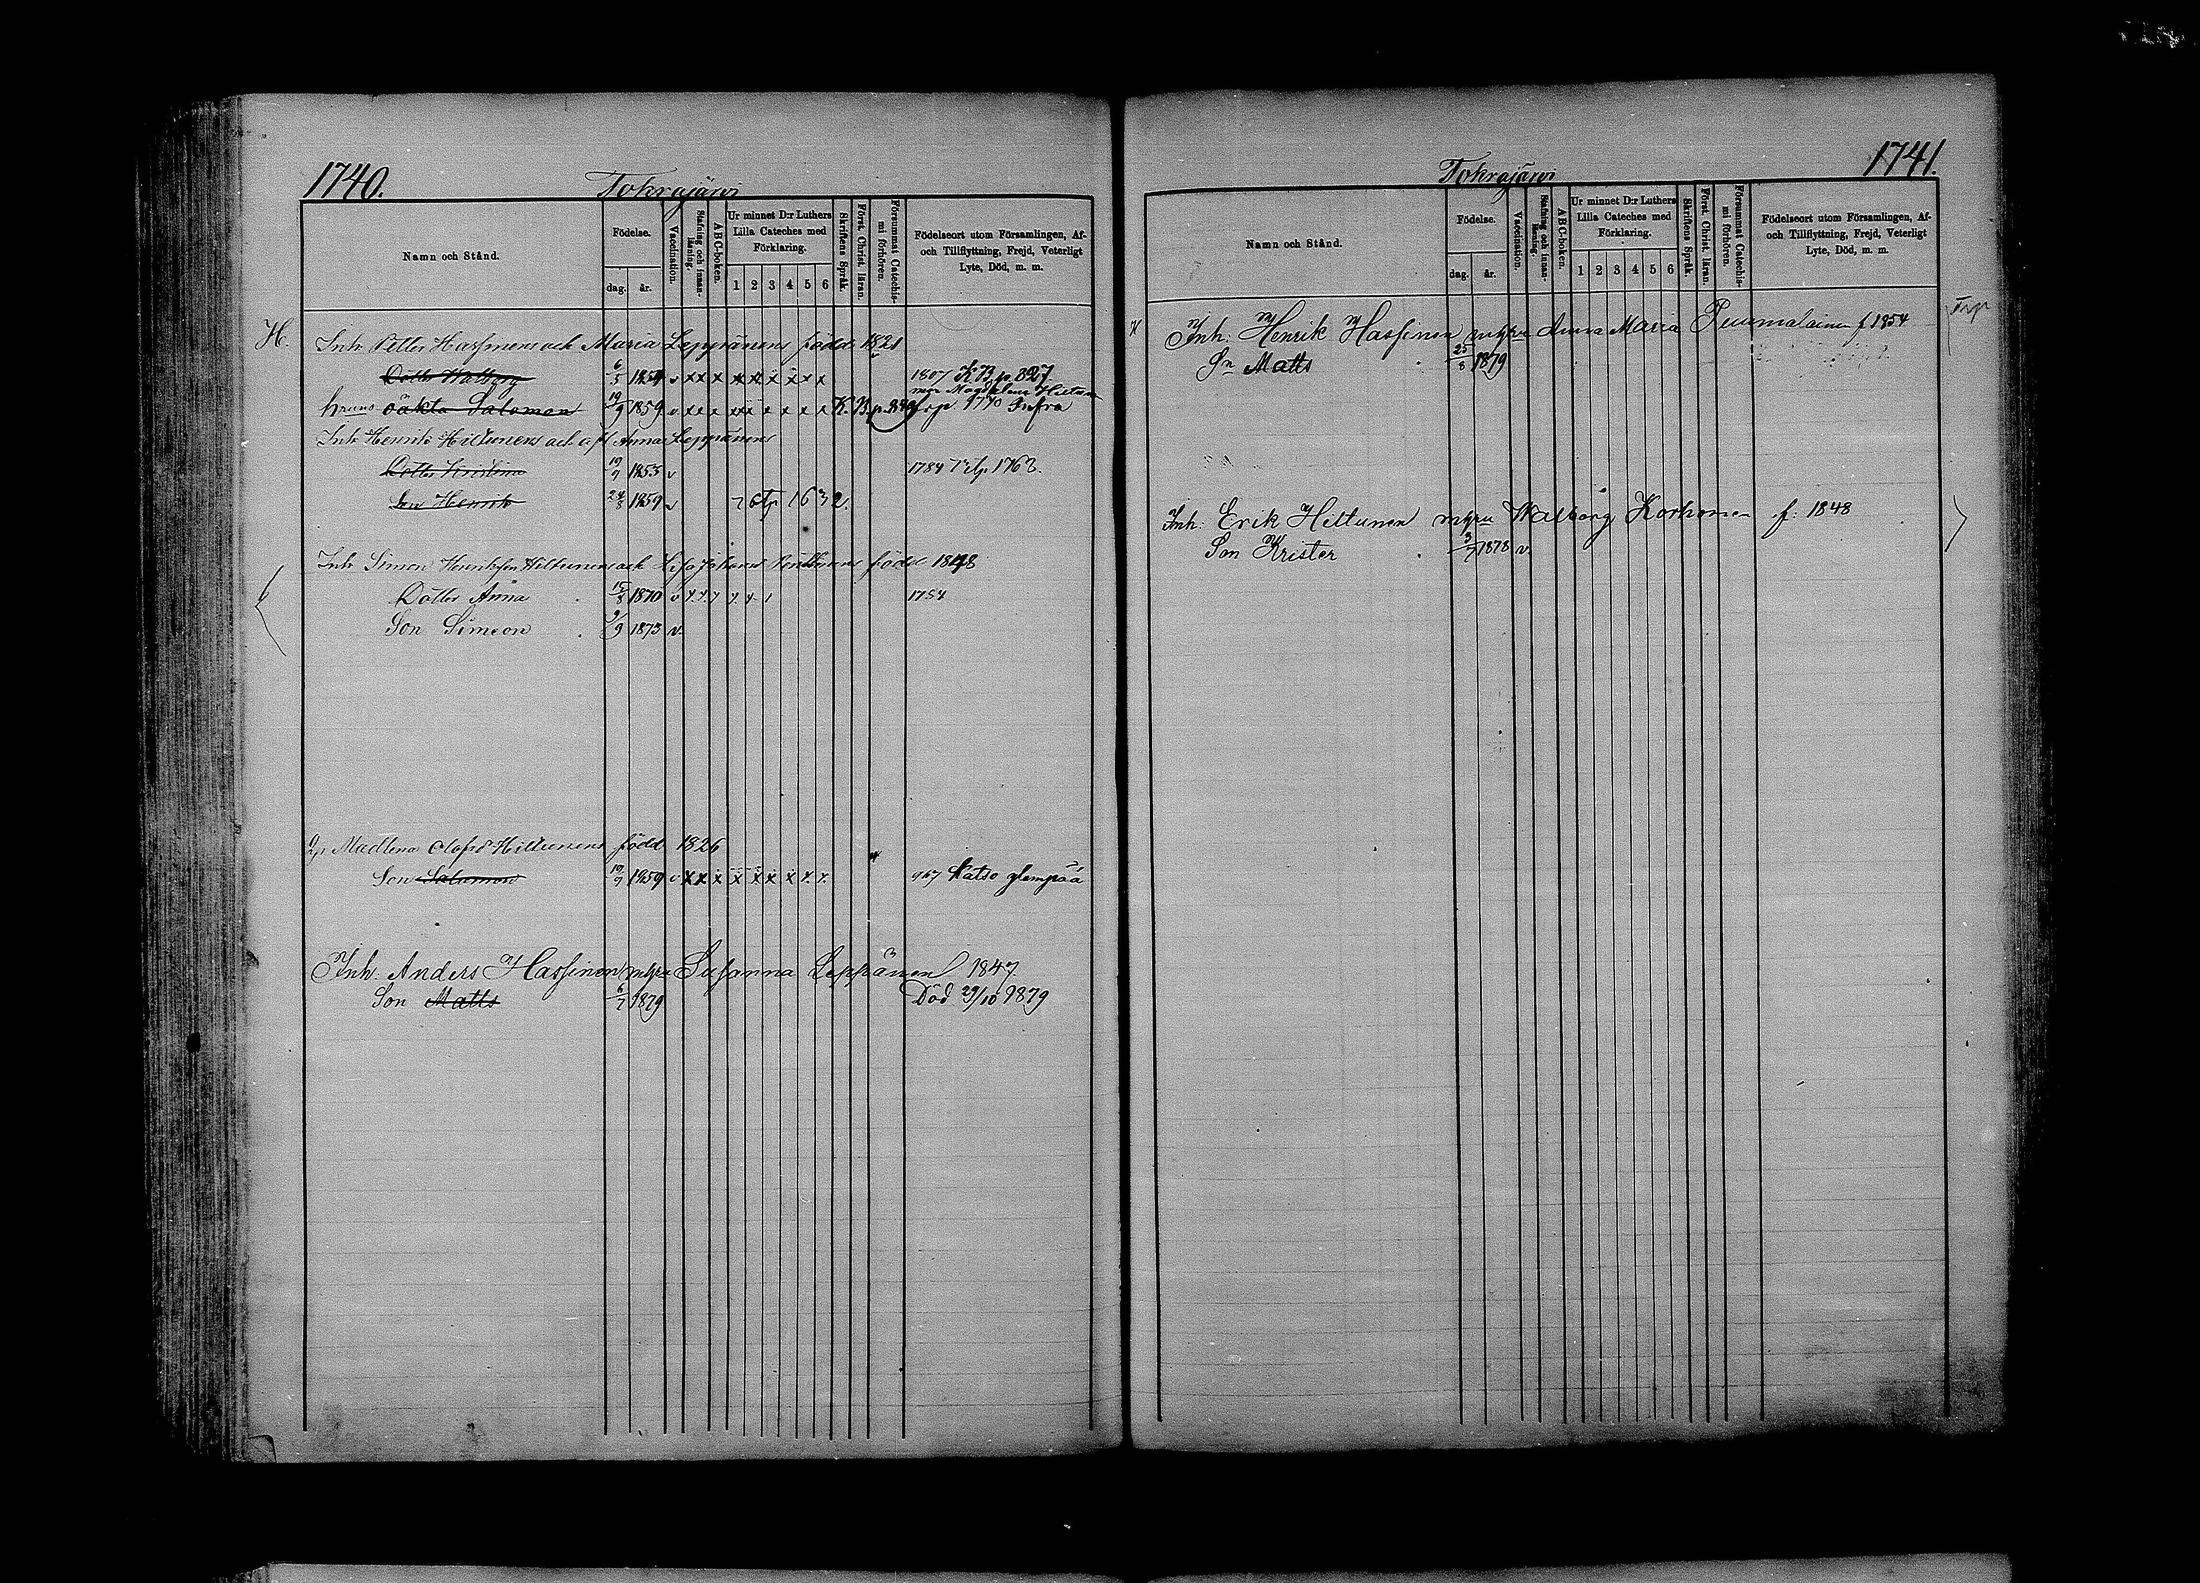 1740.
Tokrajärvi
Namn och Stånd.
Födelse.
dag.
år.
Vaccination.
Stafning och innan-läsning.
ABC-boken.
Ur minnet D:r Luthers Lilla Cateches med Förklaring.
1 2 3 4 5 6
Skriftens Språk.
Först. Christ. läran.
Försummat Catechis-mi förhören.
Födelseort utom Församlingen, Af- och Tillflyttning, Frejd, Veterligt Lyte, Död, m. m.
H. Inh. Petter Hassinens och Maria Leppänens född 1821
Dotter Walborg 6/5 1854 v x x x x x x x x x 1807 K.B. p. 327
oäkta Salomon 19/9 1859 v x x x x x x x x x K.B. 1770 Infra
Inh. Henrik Hiltunens och Anna Leppänens
Dotter Kristina 19/9 1853 v 1784 1762.
Son Henrik 24/8 1859 v 1632.
Inh. Simon Henriksson Hiltunens och född 1848
Dotter Anna 15/8 1870 v 1754
Son Simeon 2/9 1873 v.
Madlena Olofsd Hiltunens född 1826
Son Salomon 19/9 1859 v x x x x x x x x x 967 Katso ylempää
Inh. Anders Hassinen m hru Susanna Leppänen 1847
Son Matts 6/7 1879 Död 29/10 1879
1741.
Tokrajärvi
Namn och Stånd.
Födelse.
dag.
år.
Vaccination.
Stafning och innan-läsning.
ABC-boken.
Ur minnet D:r Luthers Lilla Cateches med Förklaring.
1 2 3 4 5 6
Skriftens Språk.
Först. Christ. läran.
Försummat Catechis-mi förhören.
Födelseort utom Församlingen, Af- och Tillflyttning, Frejd, Veterligt Lyte, Död, m. m.
H Inh. Henrik Hassinen m hru Anna Maria f 1854
Sn Matts 25/8 1879
Inh. Erik Hiltunen m hru Walborg Korhonen f. 1848
Son Krister 3/7 1878 v.